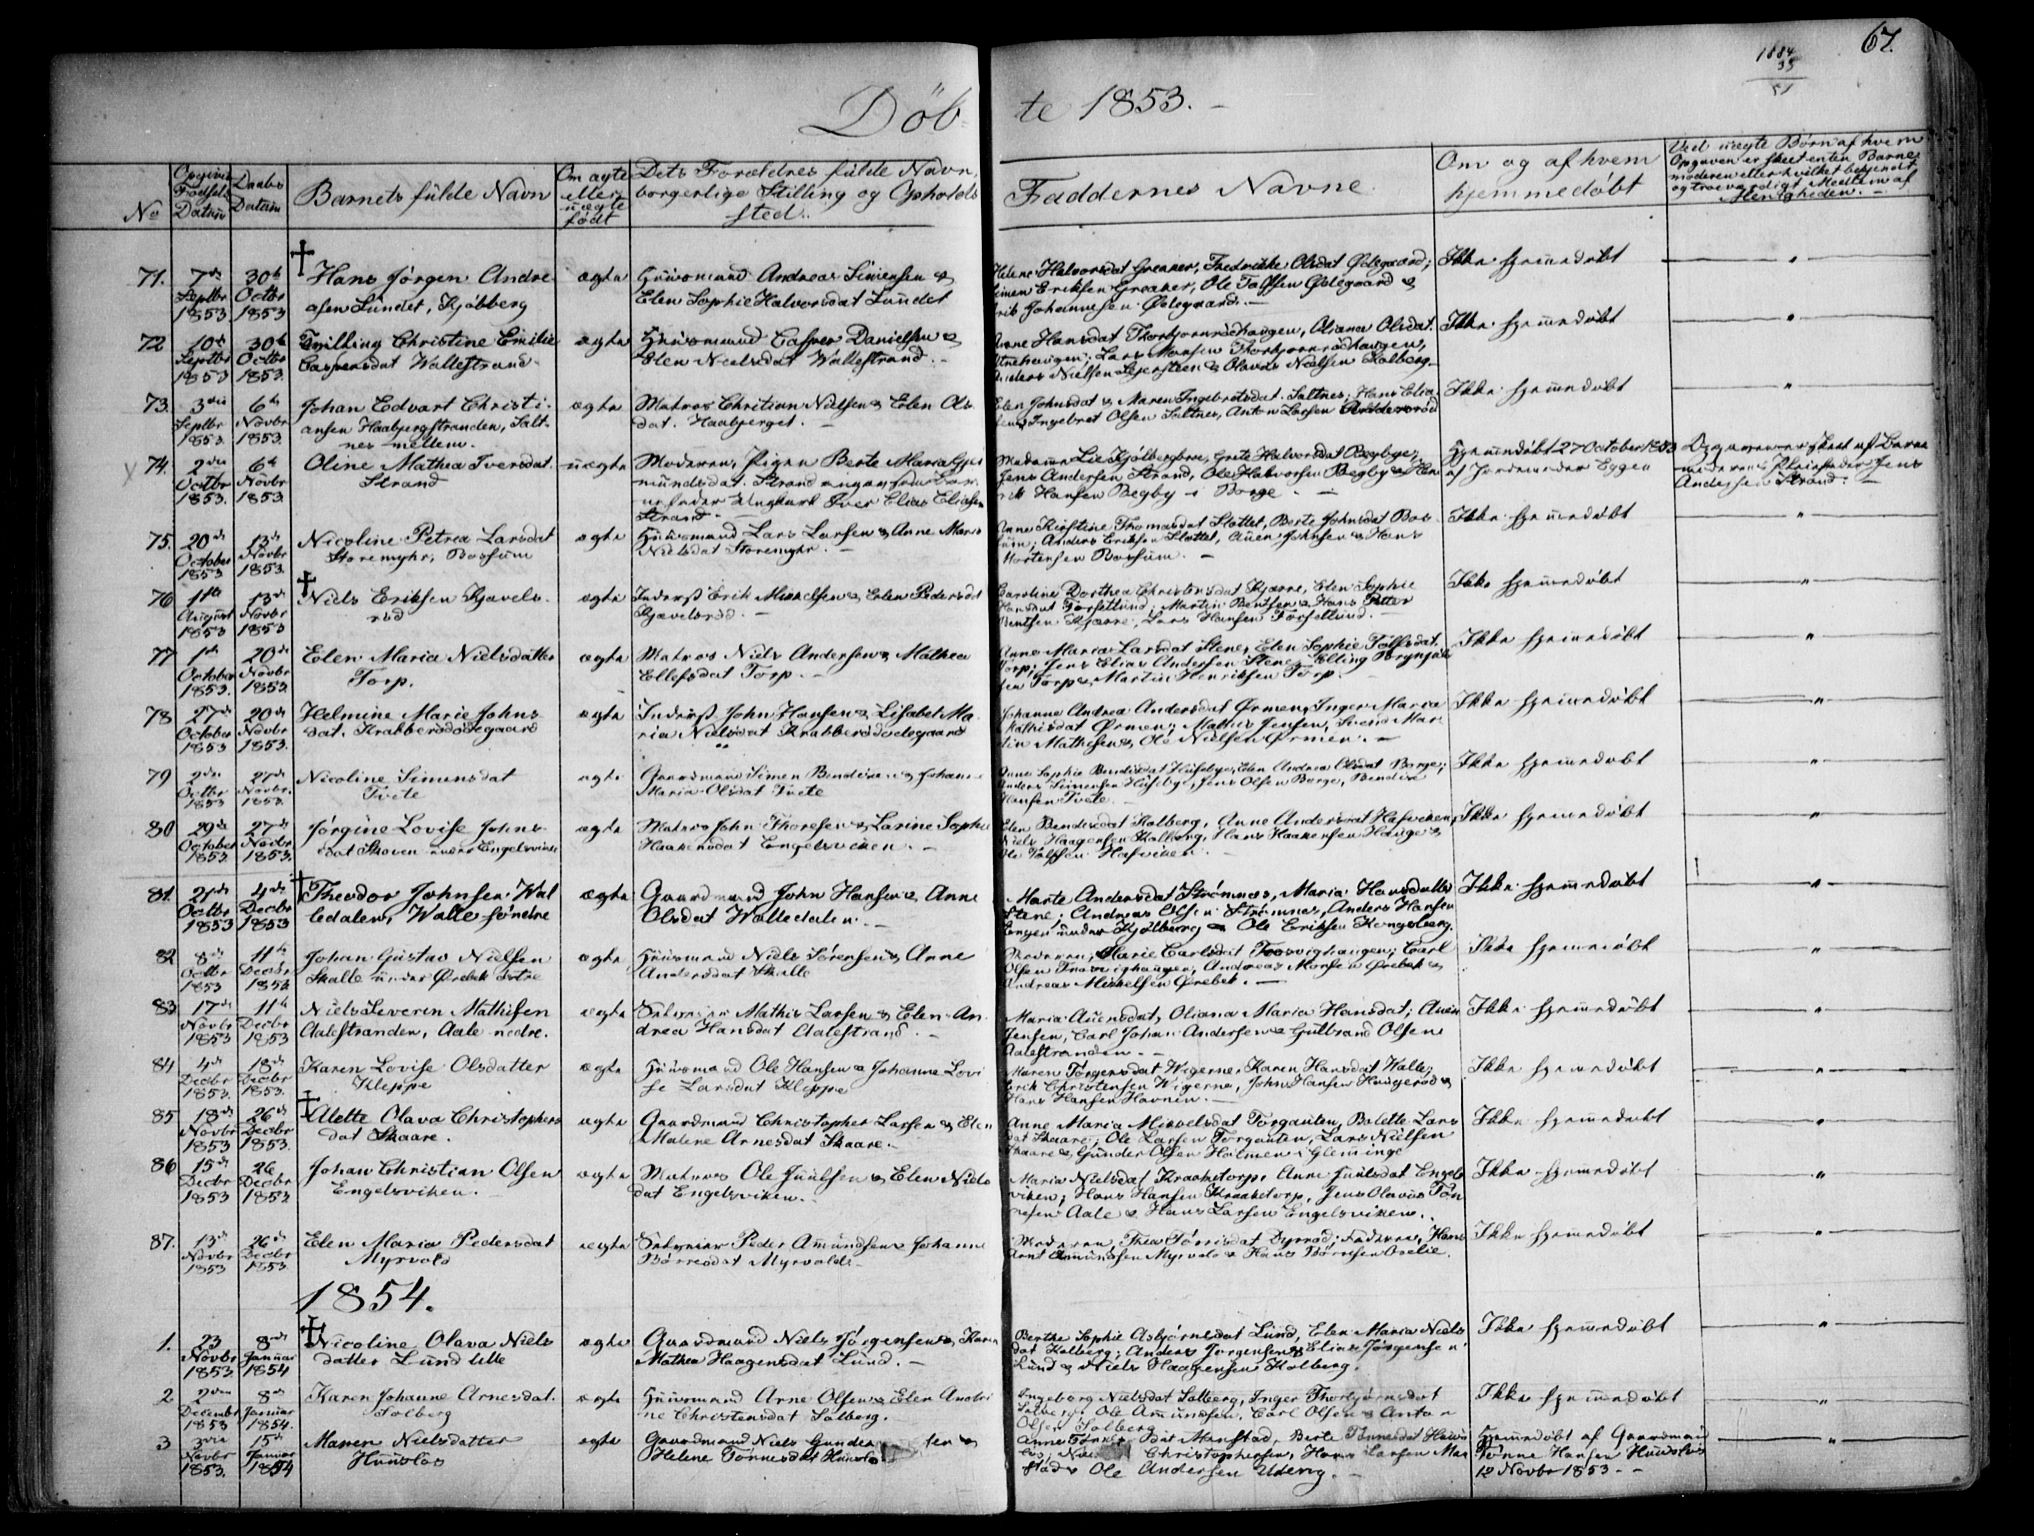 67.
1884
35
Döb-te 1853.-
No
Opgiven Fødsels Datum
Daabs Datum
Barnets fulde Navn
Om ægte eller uægte født
Dets Forældres fulde Navn, borgerlige Stilling og Opholds sted.
Faddernes Navne
Om og af hvem hjemmedøbt
Ved uægte Børn af hvem Opgaven er skeet enten Barnemoderen eller hvilket bekjendt og troeværdigt Medlem af Menigheden.
71. 7de Septbr 1853 30te Octbr 1853
Hans Jørgen Andreasen Lundet, Kjølberg
ægte
Huusmand Andreas Simensen & Elen Sophie Halvorsdat Lundet
Helene Halvorsdat Greaker, Fredrikke Olsdat Ødegaard; Simen Eriksen Greaker, Ole Tolfsen Ødegaard & Erik Johannesen Ødegaard.
Ikke hjemmedøbt
72 10de Septbr 1853 30te Octbr 1853.
Tvilling Christine Emilie Caspersdat Wallestrand
ægte
Huusmand Casper Danielsen & Elen Neelsdat Wallestrand.
Hansdat Thorbjørnrødhaugen, Oliana Olsdat
Lars Monsen Thorbjørnrødhaugen,
Anders Nielsen & Olavus Nielsen Kolberg
Ikke hjemmedøbt
73. 3die Septbr 1853. 6te Novbr 1853.
Johan Edvart Christiansen Haabjergstranden, Saltnes mellem.
ægte
Matros Chritian Nielsen & Elen As dat. Haabjerget.
Elen Johnsdat & Maren Ingebretsdat. Saltnes, Hans Elia
Ingebret Olsen Saltnes, Anton Larsen
Ikke hjemmedøbt
74. 2den Octbr 1853 6te Novbr 1853
Oline Mathea Iversdat. Strand
uægte
Moderen, Pigen Berte Maria Gjermundsdat. Strand angav som Barnefader Ungkarl Iver Elias Eliasen Strand.
Madamme Lie Kjølbergbro, Grete Halvorsdat Begbye; Jens Andersen Strand, Ole Halvorsen Begby & Henrik Hansen Begby i Borge.
Hjemmedøbt 27 October 1853 af Jordemoder Eggen
Opgaven er skeet af Barnemoderens Pleiefader Jens Andersen Strand.
75. 20de October 1853 13de Novbr 1853.
Nicoline Petrea Larsdat Storemyhr, Bossum
ægte
Huusmand Lars Larsen & Anne Maria Nielsdat Storemyhr.
Anne Kirstine Thomasdat Slottet, Berte Johnsdat Bossum; Anders Eriksen Slottet, Auen Johnsen & Hans Mortensen Bossum.
Ikke hjemmedøbt
76 11te August 1853 13de Novbr 1853
Niels Eriksen Gjavelsrød
ægte
Inderst Erik Mikkelsen & Elen Pedersdat Gjavelsrød.
Caroline Dorthea Christensdat Kjærre, Elen Sophie Hansdat Forsetlund; Martin Bentsen & Hans Petter Bentsen Kjærre, Lars Hansen Forsetlund.
Ikke hjemmedøbt
77 1ste October 1853. 20de Novbr 1853.
Elen Maria Nielsdatter Torp.
ægte
Matros Niels Andersen & Mathea Ellefsdat Torp.
Anne Maria Larsdat Stene, Elen Sophie Tolfsdat. Torp; Jens Elias Andersen Stene, Elling Brynjulfsen Torp & Martin Henriksen Torp.
Ikke hjemmedøbt
78 27de October 1853 20de Novbr 1853.
Helmine Marie Johnsdat. Krabberødødegaard
ægte
Inderst John Hansen & Lisabet Maria Nielsdat Krabberødødegaard
Johanne Andrea Andersdat Ørmen, Inger Maria Mathisdat Ørmen; Mathis Jensen, Svend Martin Mathesen & Ole Nielsen Ørmen.
Ikke hjemmedøbt
79 2den Octbr 1853 27de Novbr. 1853.
Nicoline Simensdat Tvete
ægte
Gaardmand Simen Bendixen & Johanne Maria Olsdat Tvete
Anne Sophie Bendixdat Huseby, Elen Andrea Olsdat Borge; Anders Simensen Huseby, Jens Olsen Borge, Bendix Hansen Tvete
Ikke hjemmedøbt
80 29de October 1853 27de Novbr 1853.
Jørgine Lovise Johnsdat Skoven under Engelsviken
ægte
Matros John Thoresen & Larine Sophie Haakensdat Engelsviken.
Elen Bendixdat Kolberg, Anne Andersdat Hasviken; Niels Haagensen Kolberg, Hans Haakensen Hauge & Ole Tolfsen Hasviken.
Ikke hjemmedøbt
81. 21de Octbr 1853 4de Decbr 1853
Theodor Johnsen Walledalen, Walle søndre
ægte
Gaardmand John Hansen & Anne Olsdat Walledalen.
Marte Andersdat Strømnes, Maria Hansdatter Stene; Andreas Olsen Strømnes, Anders Hansen Engen under Kjølberg & Ole Eriksen Kongsberg.
Ikke hjemmedøbt
82 8de Octbr 1853 11te Decbr 1853
Johan Gustav Nielsen Skalle under Ørebek Østre
ægte
Huusmand Niels Sørensen & Anne Andersdat Skalle
Moderen, Marie Carlsdat Trosvighaugen; Carl Olsen Trosvighaugen, Andreas Monsen Ørebek & Andreas Mikkelsen Ørebek.
Ikke hjemmedøbt
83. 17de Novbr 1853 11te Decbr 1853
Niels Severin Mathisen Aalestranden, Aale nedre.
ægte
Selveier Mathis Larsen & Elen Andrea Hansdat Aalestrand.
Maria Auensdat, Oliana Maria Hansdat; Auen Jensen, Carl Johan Andersen & Gulbrand Olsen Aalestranden.
Ikke hjemmedøbt
84 4de Decbr 1853. 18de Decbr 1853.
Karen Lovise Olsdatter Kleppe
ægte
Huusmand Ole Hansen & Johanne Lovise Larsdat Kleppe
Maren Torgersdat Wigerne, Karen Hansdat Walle; Erik Christensen Wigerne, John Hansen Haugerød & Hans Hansen Havnen.
Ikke hjemmedøbt
85 18de Novbr 1853 26de Decbr 1853.
Alette Olava Christophersdat Skaare.
ægte
Gaardmand Christopher Larsen & Elen Malene Arnesdat Skaare.
Anne Maria Mikkelsdat Torgauten, Bolette Larsdat Skaare; Ole Larsen Torgauten, Lars Nielsen Skaare & Gunder Olsen Holmen i Glemminge
Ikke hjemmedøbt
86 15de Decbr 1853 26 Decbr 1853
Johan Christian Olsen Engelsviken.
ægte
Matros Ole Juulsen & Elen Nielsdat Engelsviken.
Maria Nielsdat Kraaketorp, Anne Juulsdat Engelsviken; Hans Hansen Kraaketorp, Jens Olavus Tønnesen Aale & Hans Larsen Engelsviken.
Ikke hjemmedøbt
87. 13de Novbr 1853 26de Decbr 1853.
Elen Maria Pedersdat Myrvold
ægte
Selveier Peder Amundsen & Johanne Børresdat Myrvold.
Moderen, Thea Tørrisdat Dyrrød; Faderen, Hans Arnt Amundsen Myrvold & Hans Børresen Oselie.
Ikke hjemmedøbt
1854.
1. 23 Novbr 1853 8de Januar 1854
Nicoline Olava Nielsdatter Lund lille
ægte
Gaardmand Niels Jørgensen & Karen Mathea Haagensdat Lund.
Berthe Sophie Asbjørnsdat Lund, Elen Maria Nielsdat Kolberg; Anders Jørgensen & Elias Jørgensen Lund & Niels Haagensen Kolberg.
Ikke hjemmedøbt
2 2den December 1853 8de Januar 1854.
Karen Johanne Arnesdat. Solberg
ægte
Huusmand Arne Olsen & Elen Andrine Christensdat Solberg.
Ingeborg Nielsdat Solberg, Inger Thorbjørnsdat Solberg; Ole Amundsen, Carl Olsen & Anton Olsen Solberg
Ikke hjemmedøbt
3 3die Novbr 1853. 15de Januar 1854
Maren Nielsdatter Huuslos
ægte
Gaardmand Niels Gunder sen & Helene Tønnesdat Huuslo
Anne dat Manstad, Berte Tønnesdat Huuslos, Christophersen, Hans Larsen Manstad & Ole Andersen Udeng.
Hjemmedøbt af Gaardmand Tønne Hansen Huuslos 12 Novbr 1853.